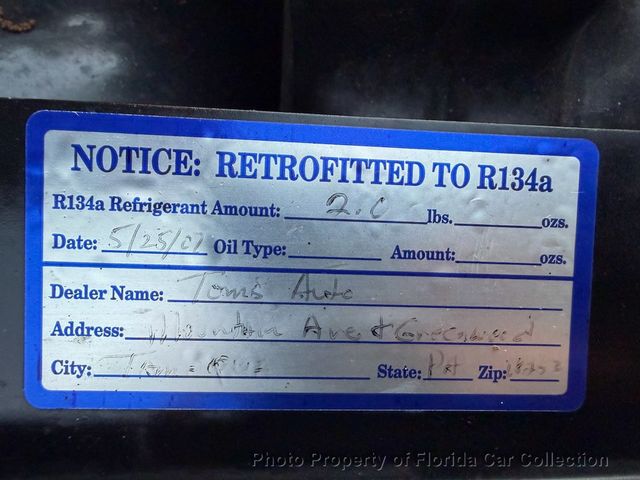 NOTICE: RETROFITTED TO R134a
R134a Refrigerant Amount: 2.0 lbs. ozs.
Date: 5/25/07 Oil Type: Amount: ozs.
Dealer Name: Toms Auto
Address: Mountain Ave + Greenwood
City: State: PA Zip:
Photo Property of Florida Car Collection